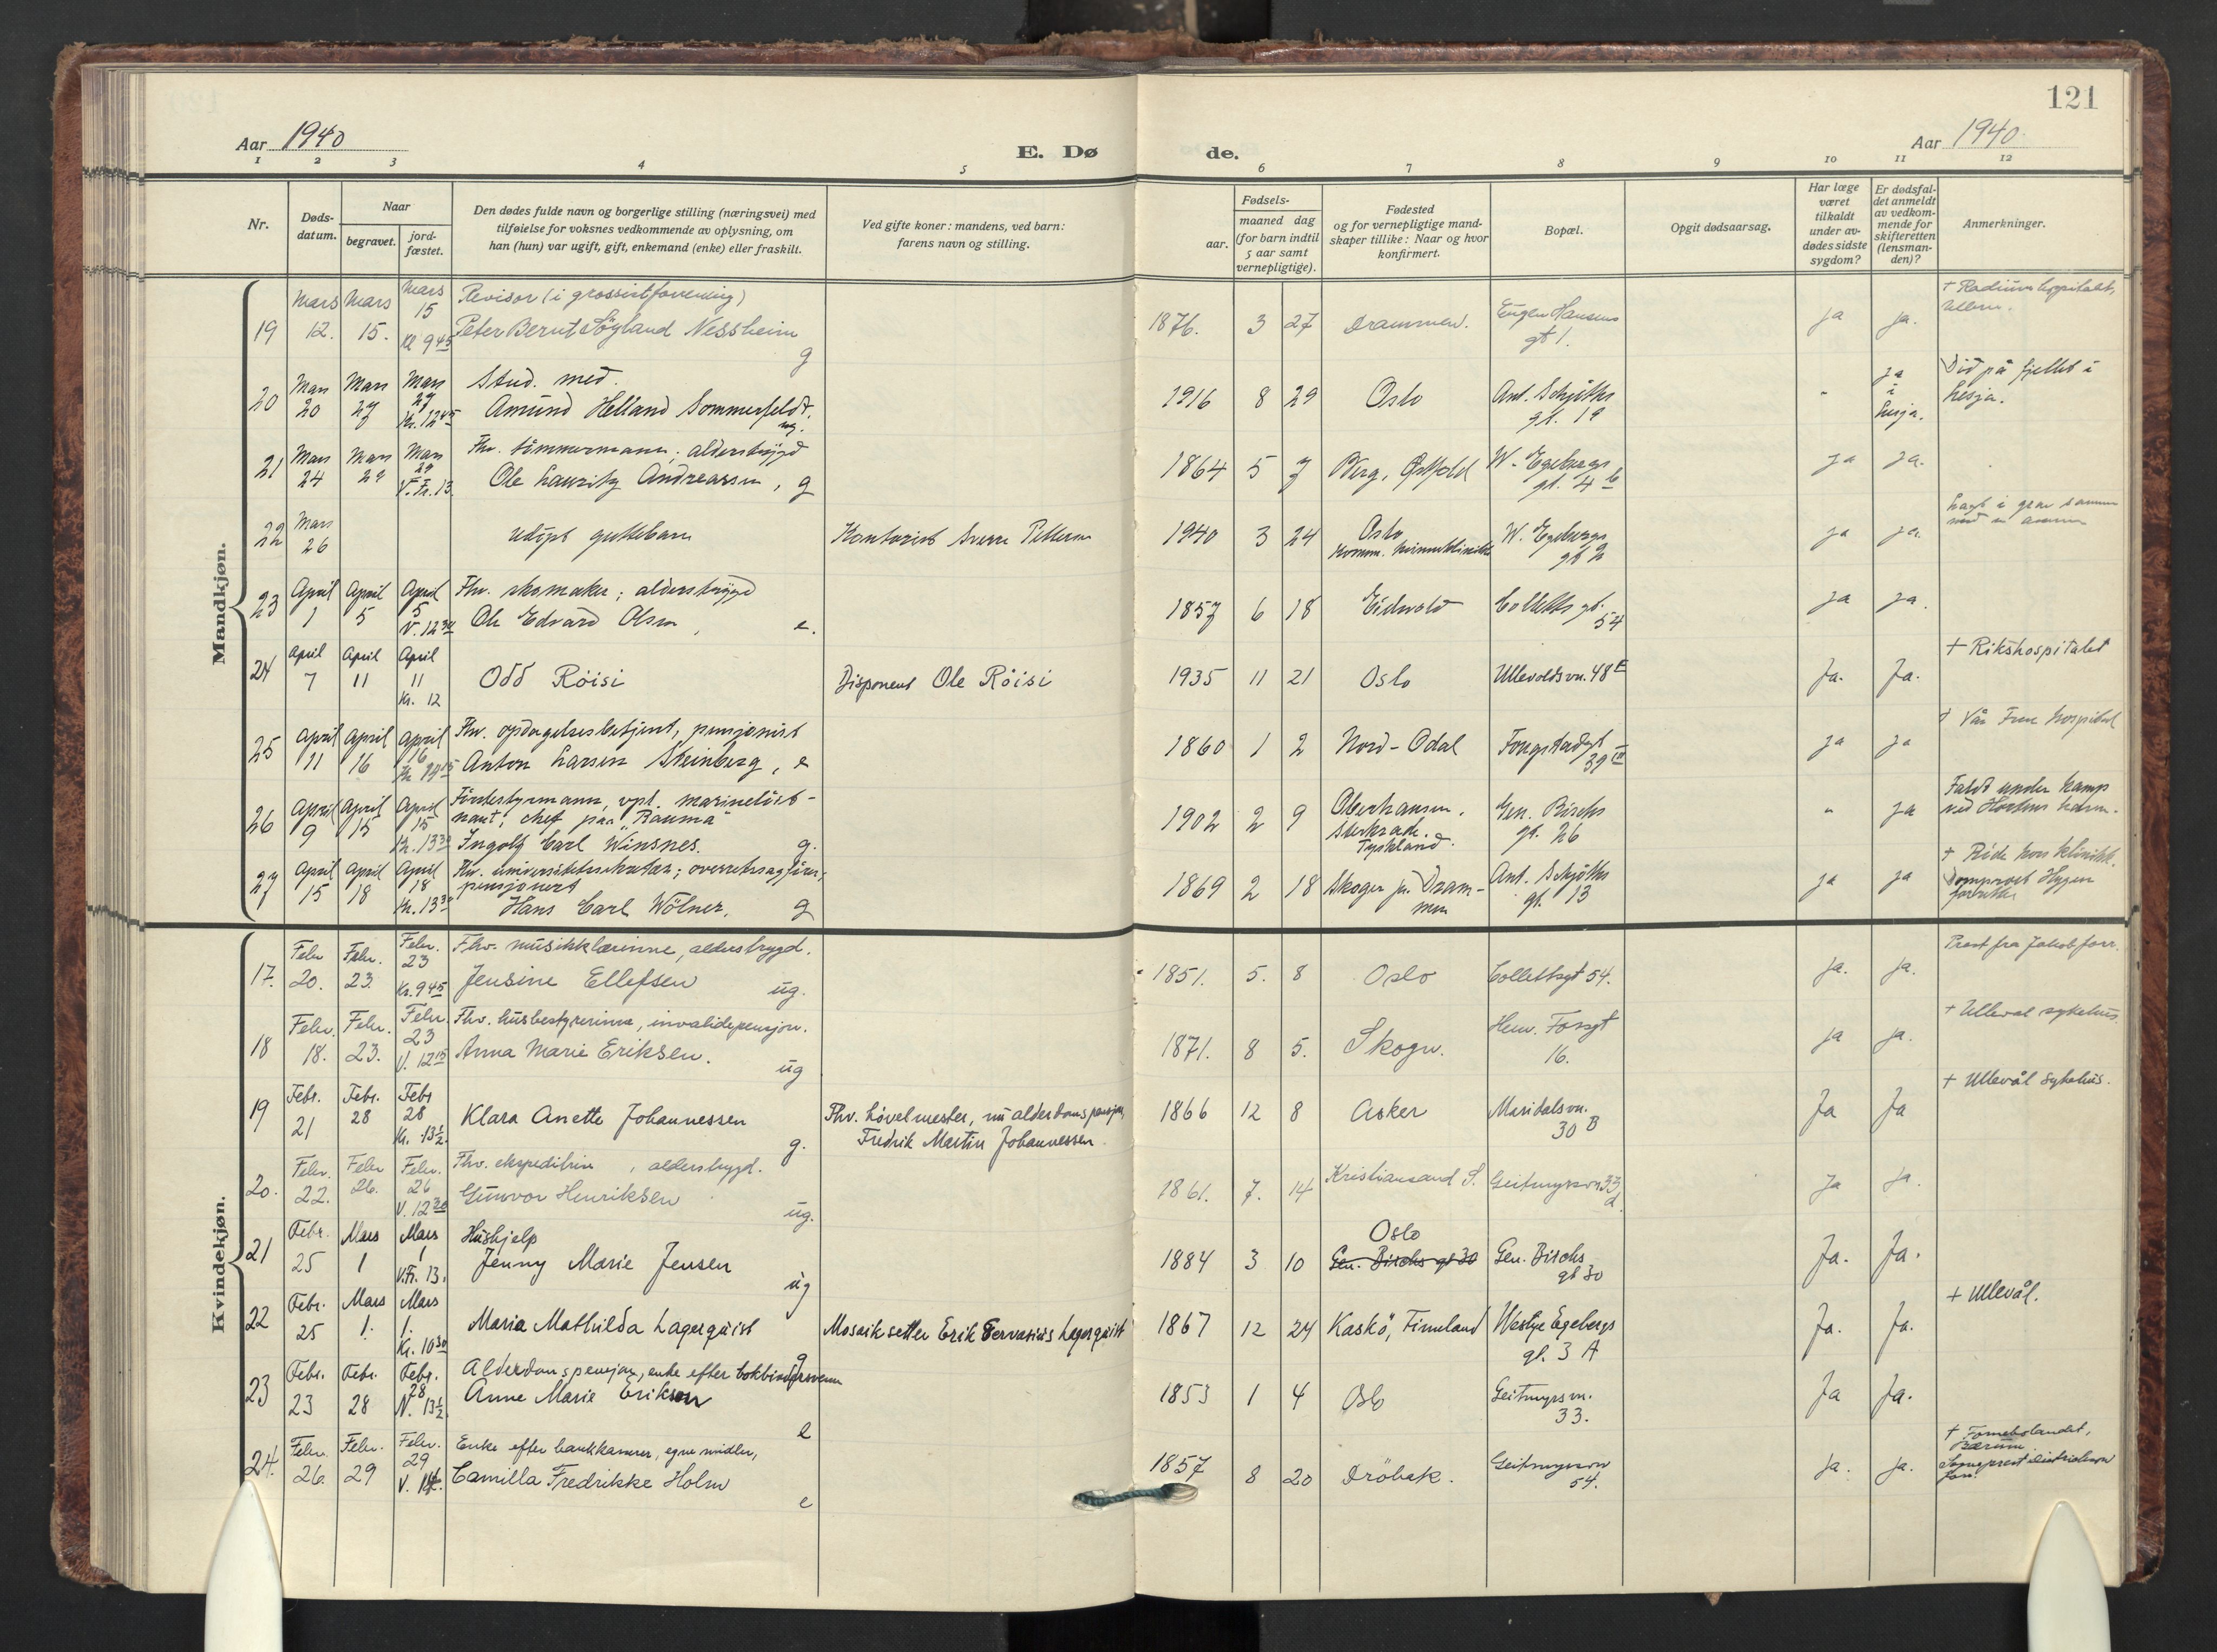 121
Aar 1940
E. Dø
de.
Aar 1940
1 2 3 4 5 6 7 8 9 10 11 12
Nr.
Døds-datum.
Naar
begravet.
jord-fæstet.
Den dødes fulde navn og borgerlige stilling (næringsvei) med
tilføielse for voksnes vedkommende av oplysning, om
han (hun) var ugift, gift, enkemand (enke) eller fraskilt.
Ved gifte koner: mandens, ved barn:
farens navn og stilling.
Fødsels-
aar.
maaned dag
(for barn indtil
5 aar samt
vernepligtige).
Fødested
og for vernepligtige mand-
skaper tillike: Naar og hvor
konfirmert.
Bopæl.
Opgit dødsaarsag.
Har læge
været
tilkaldt
under av-
dødes sidste
sygdom?
Er dødsfal-
det anmeldt
av vedkom-
mende for
skifteretten
(lensman-
den)?
Anmerkninger.
Mandkjøn.
19 Mars 12. Mars 15. Mars 15 Kl 9 45 Revisor (i grossistforening)
Peter Bernt Søyland Nessheim g 1876. 3 27 Drammen. Eugen Hansens gt 1. ja ja. † Radiumhospitalet, Ullern.
20 Mars 20 Mars 27 Mars 27 Kr. 12 45 Stud. med.
Amund Helland Sommerfeldt. ug. 1916 8 29 Oslo Ant. Schjøths gt. 19 - ja i Lesja. Død på fjellet i Lesja.
21 Mars 24 Mars 29 Mars 29 V.Fr. 13 Fhv. tømmermann; alderstrygd
Ole Lauritz Andreassen, g 1864 5 7 Berg, Østfold W. Egebergs gt. 4 b ja ja.
22 Mars 26 udøpt guttebarn Kontorist Sverre Pettersen 1940 3 24 Oslo Komm. kvinneklinikk W. Egebergs gt 2 ja ja. Lagt i grav sammen med en annen
23 April 1 April 5 April 5 V. 12 30 Fhv. skomaker; alderstrygd
Ole Edvard Olsen, e. 1857 6 18 Eidsvold Colletts gt. 54 ja ja.
24 April 7 April 11 April 11 Kr. 12 Odd Röisi Disponent Ole Röisi 1935 11 21 Oslo Ullevoldsvn. 48 E Ja. Ja. + Rikshospitalet
25 April 11 April 16 April 16 Kr. Fhv. opdagelsesbetjent, pensjonist
Anton Larsen Steinberg, e 1860 1 2 Nord-Odal Fougstadsgt 39 III ja ja † Vår Frue hospital
26 April 9 April 15 April 15 Kr. 13 30 Førstestyrmann, vpl. marineløit-
nant, chef paa "Rauma"
Ingolf Carl Winsnes. g. 1902 2 9 Oberhausen. Sterkrade. Tyskland. Gen. Birchs gt. 26 - ja Faldt under kamp ved Hortens havn.
27 April 15 April 18 April 18 Kr. 13 30 Fhv. universitetssekretær; overretssagfører;
pensjonert
Hans Carl Wölner. g 1869 2 18 Skoger pr. Drammen Ant. Schjøths gt. 13 ja ja † Røde kors klinikk. Domprost Hygen forrettet
Kvindekjøn.
17. Febr 20. Febr. 23. Febr. 23 Kr. 9 45 Fhv. musikklærinne, alderstrygd.
Jensine Ellefsen ug. 1851. 5. 8 Oslo Collettsgt 54. ja. ja. Prest fra Jakob forr.
18 Febr. 18. Febr. 23. Febr. 23 V. 12 15 Fhv. husbestyrerinne, invalidepensjon.
Anna Marie Eriksen. ug 1871. 8 5. Skogn. 16. ja ja. † Ulleval sykehus.
19 Febr. 21 Febr. 28 Febr 28 Kr. 13½ Klara Anette Johannessen g. Fhv. høvelmester, nu alderdomspensjon,
Fredrik Martin Johannessen. 1866 12 8 Asker Maridalsvn. 30 B Ja Ja + Ullevål sykehus.
20. Febr. 22. Febr 26. Febr. 26 V. 12 30 Fhv. ekspeditrise, alderstrygd.
Gunvor Henriksen ug. 1861. 7. 14 Kristiansand S. Geitmyrsvn 33 d. Ja ja.
21 Febr. 25 Mars 1 Mars 1 V.Fr. 13. Hushjelp
Jenny Marie Jensen ug 1884 3 10 Oslo Gen. Birchs gt 30 Gen. Birchs gt 30 Ja. Ja.
22 Febr. 25 Mars 1. Mars 1. Kr. 10 30 Maria Mathilda Lagerquist g Mosaiksetter Erik Gervasius Lagerquist 1867 12 24 Kaskö, Finnland Westye Egebergs gt. 3 A Ja. Ja. + Ullevål.
23 Febr. 23 Febr. 28 Febr. 28 N. 13½ Alderdomspensjon, enke efter bokbindersvenn
Anne Marie Eriksen e 1853 1 4 Oslo Geitmyrsvn. 33. Ja Ja.
24. Febr. 26. Febr. 29 Febr. 29 V. 14 Enke efter bankkasserer, egne midler,
Camilla Fredrikke Holm e 1857 8 20 Drøbak. Geitmyrsvn 54. Ja. ja. † Fornebolandet, Bærum. Sogneprest